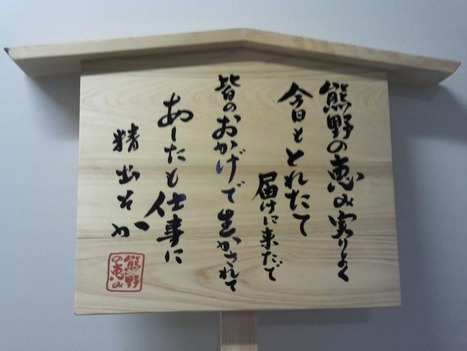 熊野の恵み実りよく
今日もとれたて
届けに来たで
皆のおかげで生かされて
あしたも仕事に
精出そか
熊野
の恵み